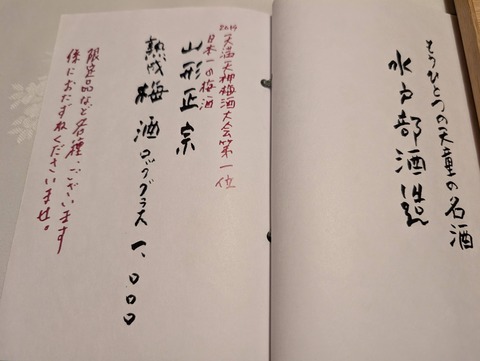 もうひとつの天童の名酒
水戸部酒造
天満天神梅酒大会第一位
日本一の梅酒
山形正宗
熟成梅酒ロックグラス 一、〇〇〇
限定品など各種ございます
係におたずねくださいませ。